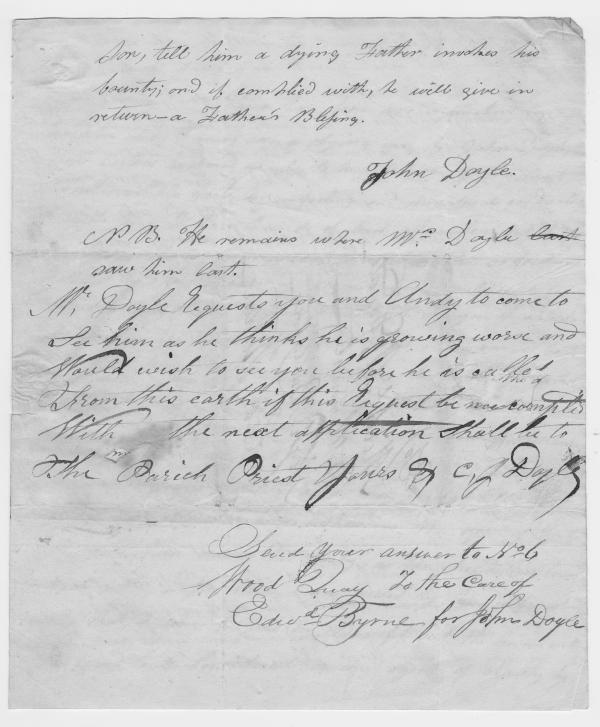 son, tell him a dying Father invokes his
bounty; and if complied with, he will give in
return - a Father's Blessing.
John Doyle.
N.B. He remains where Mrs Doyle last
saw him last.
Mr. Doyle Requests you and Andy to come to
See him as he thinks he is growing worse and
Would wish to see you before he is called
From this earth if this Request be not complied
With the next application Shall be to
The Parich Priest Yours & C, J Doyle
Send your answer to No 6
Wood Quay To the Care of
Edwd Byrne for John Doyle